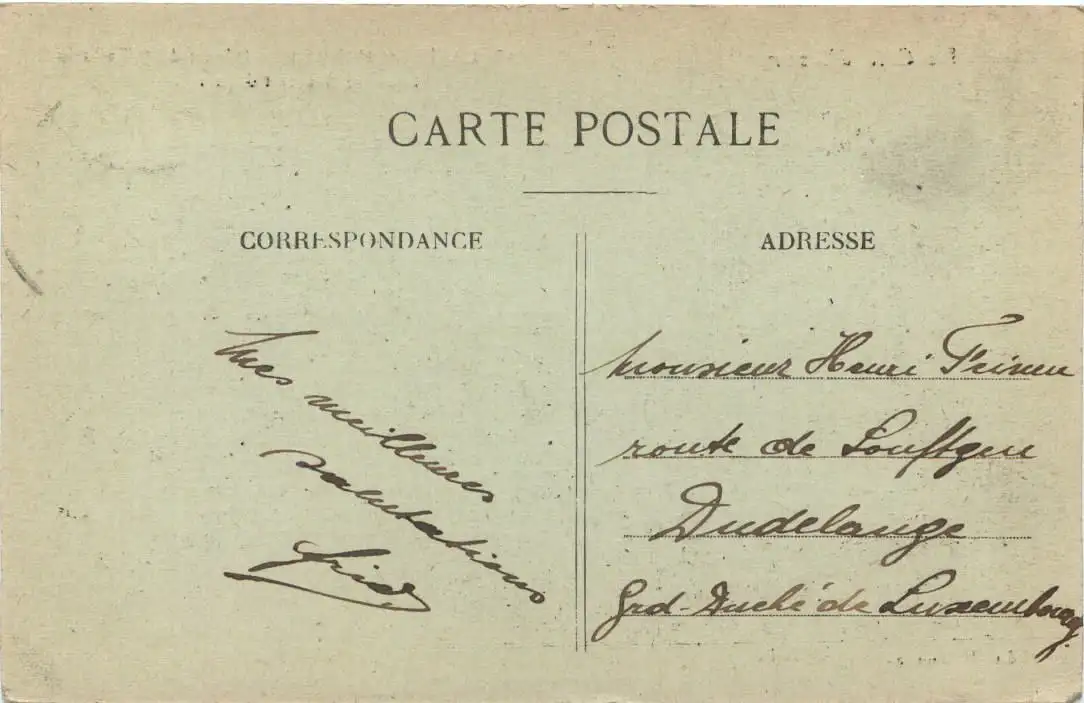 CARTE POSTALE
CORRESPONDANCE
Mes meilleures
salutations
ADRESSE
Monsieur Henri
route de
Dudelange
Grd-Duché de Luxembourg